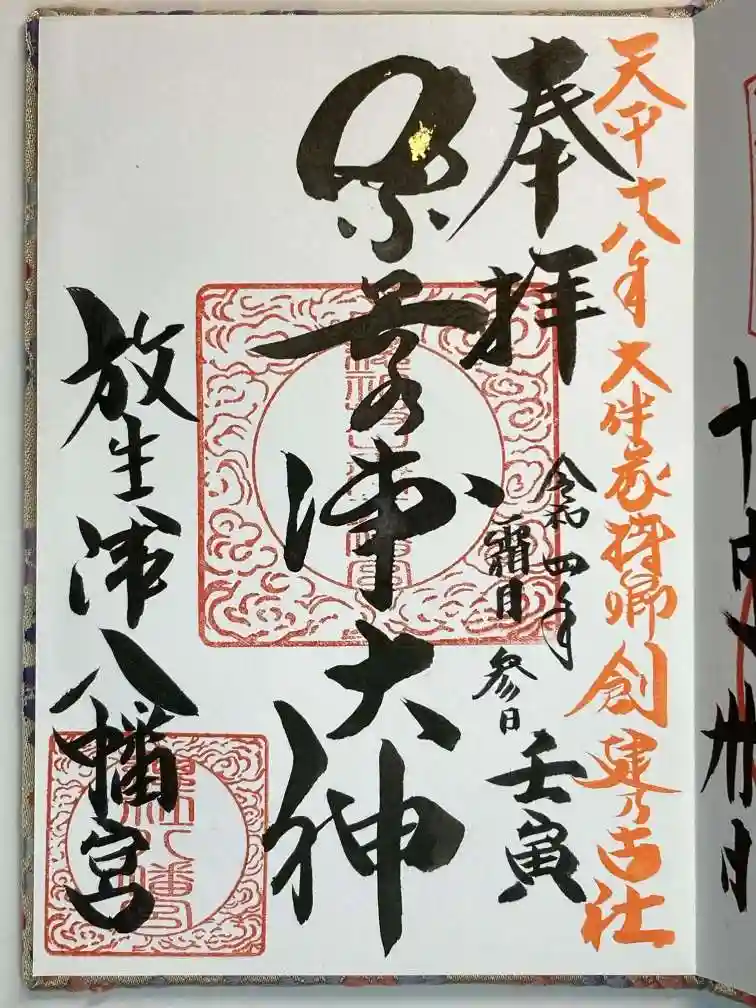 天平十八年 大伴家持卿創建乃古社
奉拝
令和四年
霜月 参日
壬寅
奈呉の浦大神
放生津八幡宮